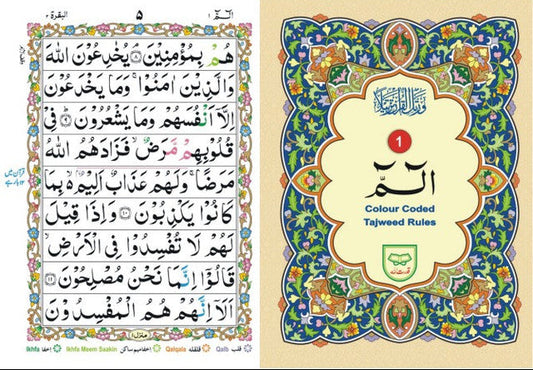 البقرة ٢
۵
الٓمّٓ ١
هُمْ بِمُؤْمِنِيْنَ ۘ ﴿٨﴾ يُخٰدِعُوْنَ اللّٰهَ
وَالَّذِيْنَ اٰمَنُوْا ۚ وَمَا يَخْدَعُوْنَ
اِلَّاۤ اَنْفُسَهُمْ وَمَا يَشْعُرُوْنَ ؕ ﴿٩﴾ فِىْ
قُلُوْبِهِمْ مَّرَضٌ ۙ فَزَادَهُمُ اللّٰهُ
مَرَضًا ۚ وَلَهُمْ عَذَابٌ اَلِيْمٌۢ ۙ بِمَا
كَانُوْا يَكْذِبُوْنَ ﴿١٠﴾ وَاِذَا قِيْلَ
لَهُمْ لَا تُفْسِدُوْا فِى الْاَرْضِ ۙ
قَالُوْۤا اِنَّمَا نَحْنُ مُصْلِحُوْنَ ﴿١١﴾
اَلَاۤ اِنَّهُمْ هُمُ الْمُفْسِدُوْنَ
قرآن میں
منزل ١
Ikhfa اخفا Ikhfa Meem Saakin اخفا میم ساکن Qalqala قلقله Qalb قلب
1
الٓمّٓ
Colour Coded
Tajweed Rules